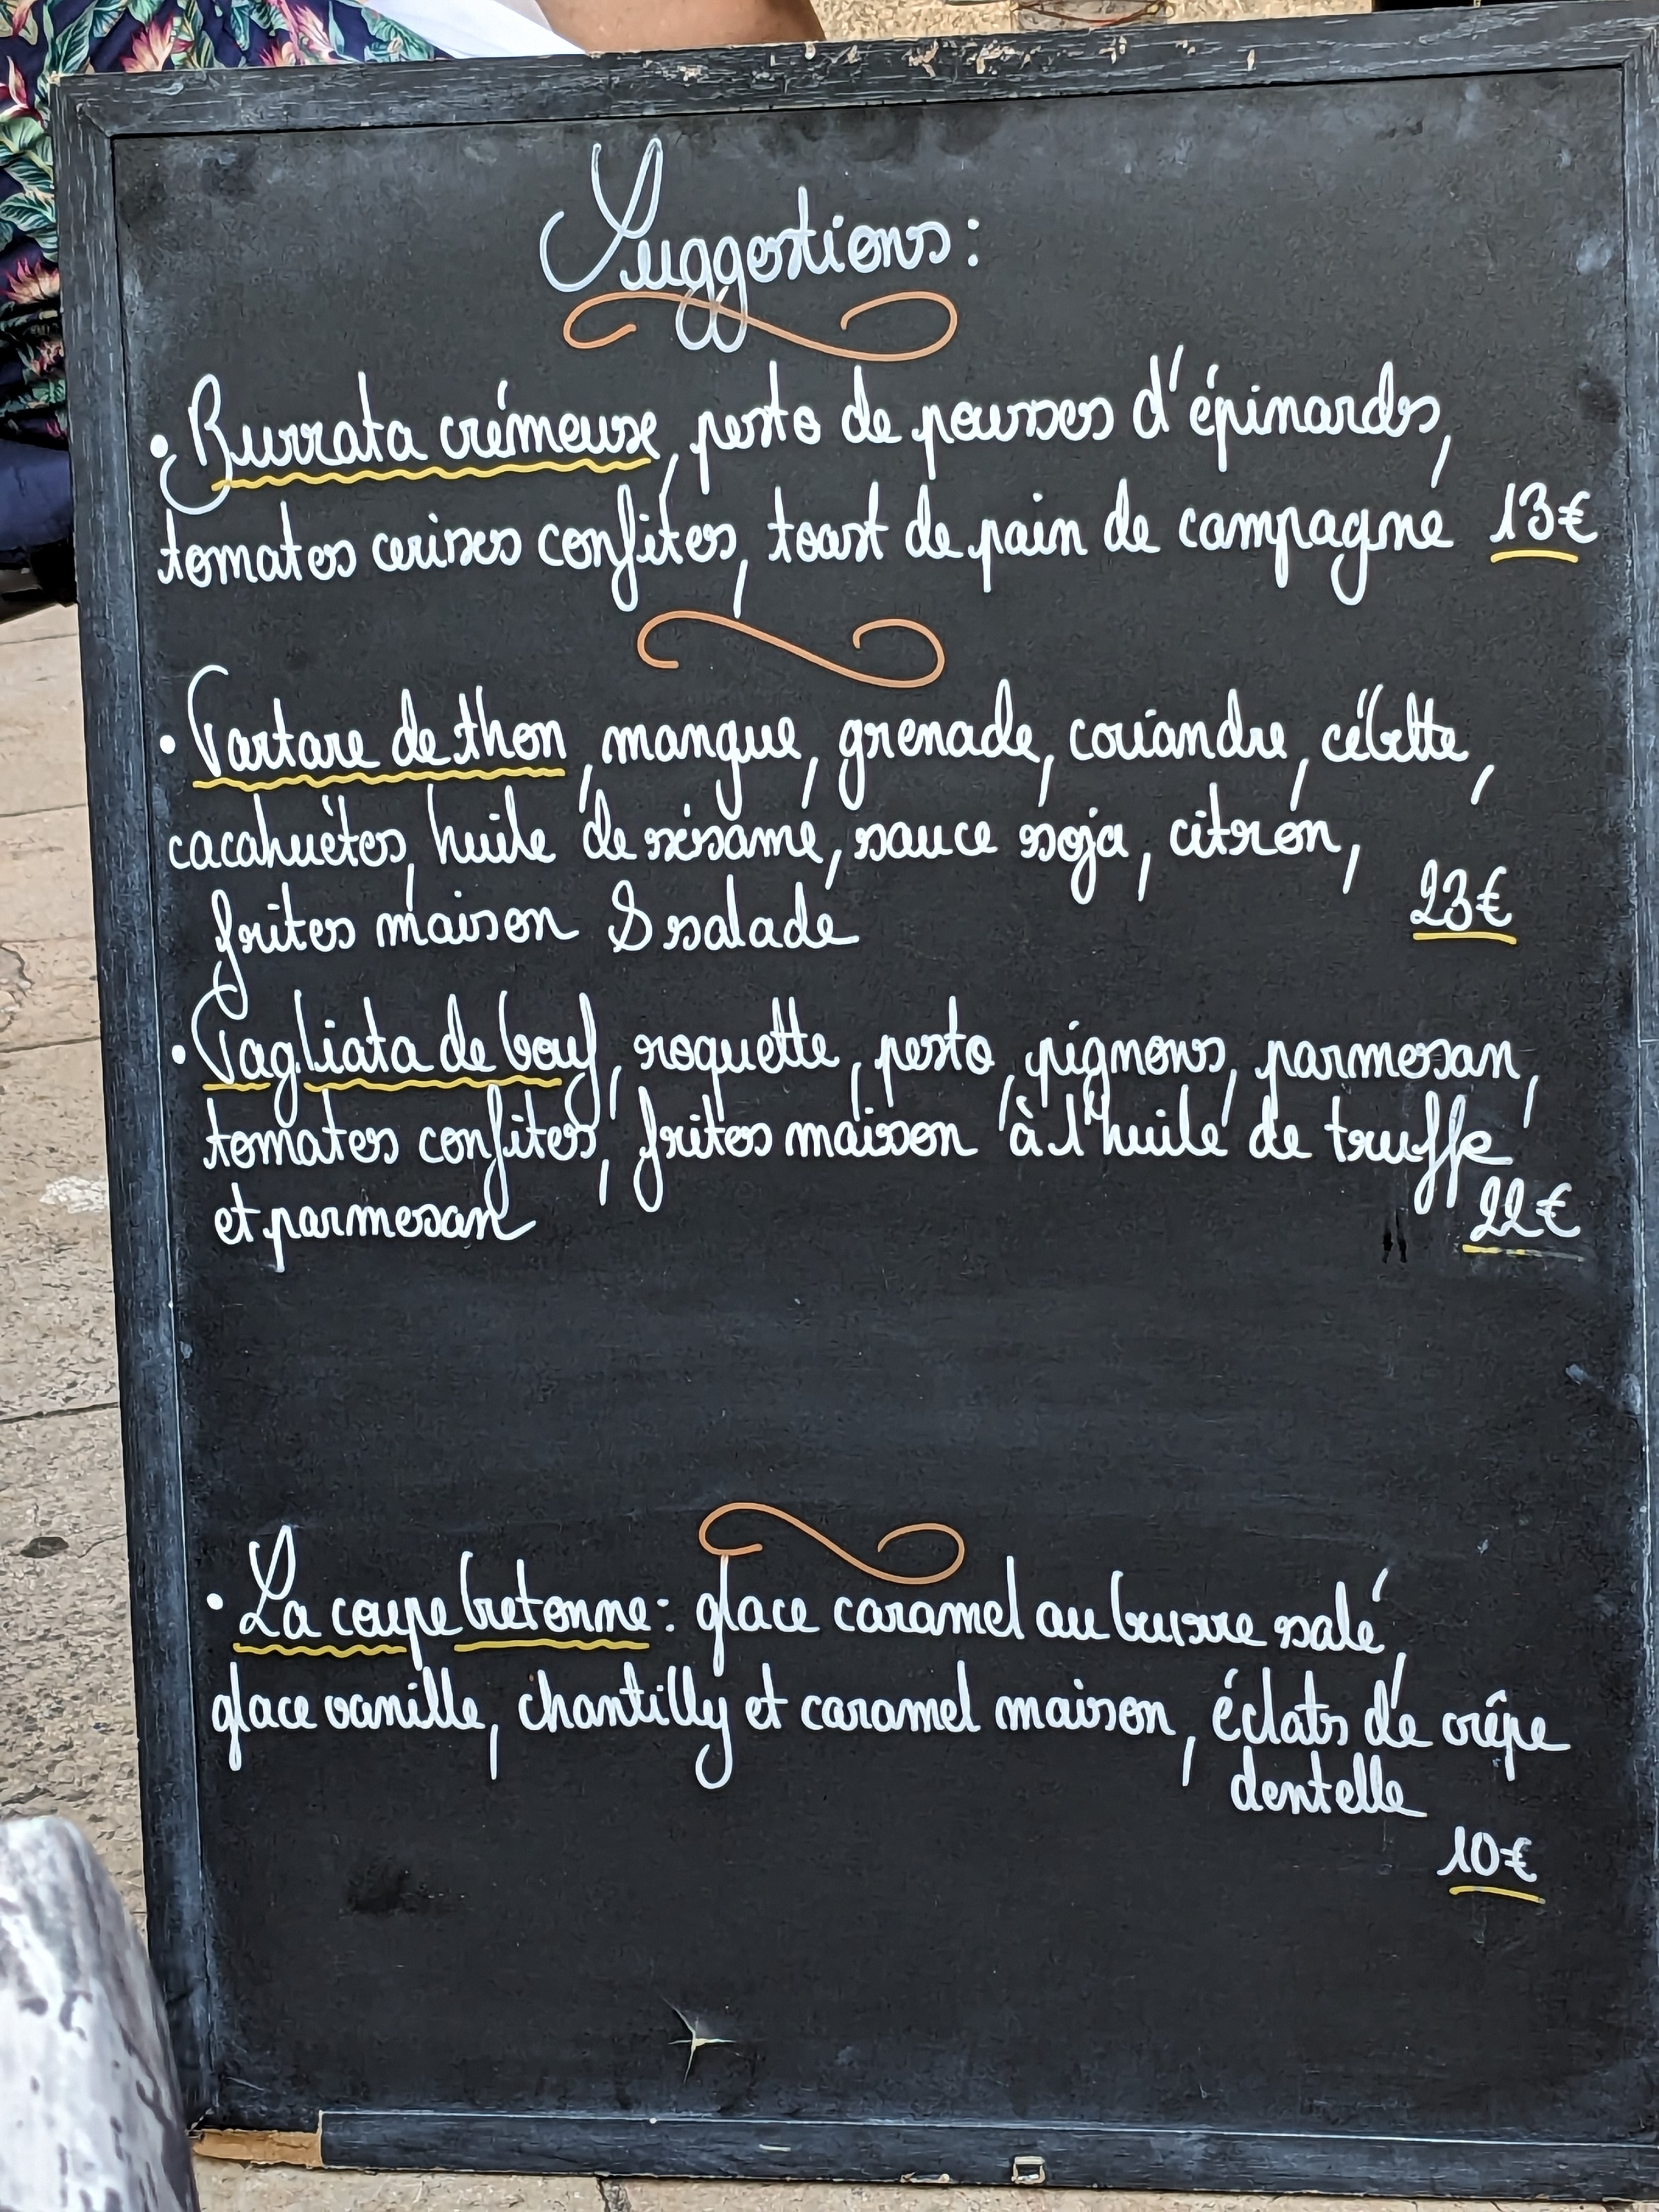 Suggestions :
• Burrata crémeuse, pesto de pousses d'épinards,
tomates cerises confites, toast de pain de campagne 13€
• Tartare de thon, mangue, grenade, coriandre, cébette,
cacahuètes, huile de sésame, sauce soja, citron,
frites maison & salade 23€
• Tagliata de bœuf, roquette, pesto, pignons, parmesan,
tomates confites, frites maison à l'huile de truffe
et parmesan 22€
• La coupe bretonne : glace caramel au beurre salé,
glace vanille, chantilly et caramel maison, éclats de crêpe
dentelle
10€